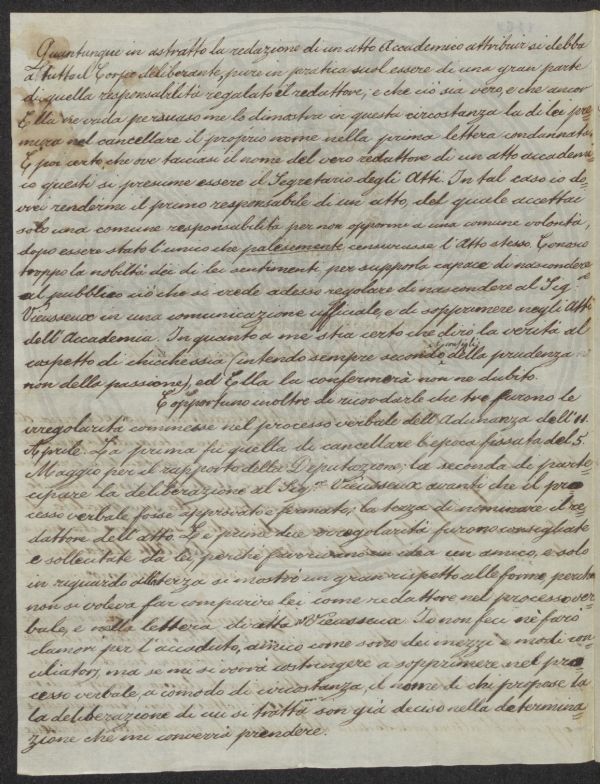 Quantunque in astratto la redazione di un atto Accademico attribuir si debba
a tutto il Corpo deliberante, pure in pratica suol essere di una gran parte
di quella responsabilità regalato il redattore, e che ciò sia vero, e che ancor
Ella ne vada persuaso me lo dimostra in questa circostanza la di lei pre=
mura nel cancellare il proprio nome nella prima lettera condannata.
È poi certo che ove tacciasi il nome del vero redattore di un atto accademi=
co questi si presume essere il Segretario degli Atti. In tal caso io do=
vrei rendermi il primo responsabile di un atto, del quale accettai
solo una comune responsabilità per non oppormi a una comune volontà,
dopo essere stato l'unico che palesemente censurasse l'Atto stesso. Conosco
troppo la nobiltà dei di lei sentimenti per supporla capace di nascondere
al pubblico ciò che si crede adesso regolare di nascondere al Sig.re
Vieusseux in una comunicazione ufficiale, e di sopprimere negli Atti
dell'Accademia. In quanto a me stia certo che dirò la verità al
cospetto di chicchessia (intendo sempre secondo i consigli della prudenza e
non della passione), ed Ella la confermerà non ne dubito.
È opportuno inoltre di ricordarle che tre furono le
irregolarità commesse nel processo verbale dell'Adunanza dell'11
Aprile. La prima fu quella di cancellare l'epoca fissata del 5
Maggio per il rapporto della Deputazione; la seconda di parte=
cipare la deliberazione al Sig.re Vieusseux avanti che il pro=
cesso verbale fosse approvato e firmato; la terza di nominare il re=
dattore dell'atto. Le prime due irregolarità furono consigliate
e sollecitate da lei, perchè favorivano un idea un amico, e solo
in riguardo alla terza si mostrò un gran rispetto alle forme, perchè
non si voleva far comparire lei come redattore nel processo ver=
bale, e nella lettera diretta a Vieusseux. Io non feci nè farò
clamori per l'accaduto, amico come sono dei mezzi e modi con=
ciliatori, ma se mi si vorrà costringere a sopprimere nel pro=
cesso verbale, a comodo di circostanza, il nome di chi propose la
la deliberazione di cui si tratta son già deciso nella determina=
zione che mi converrà prendere.